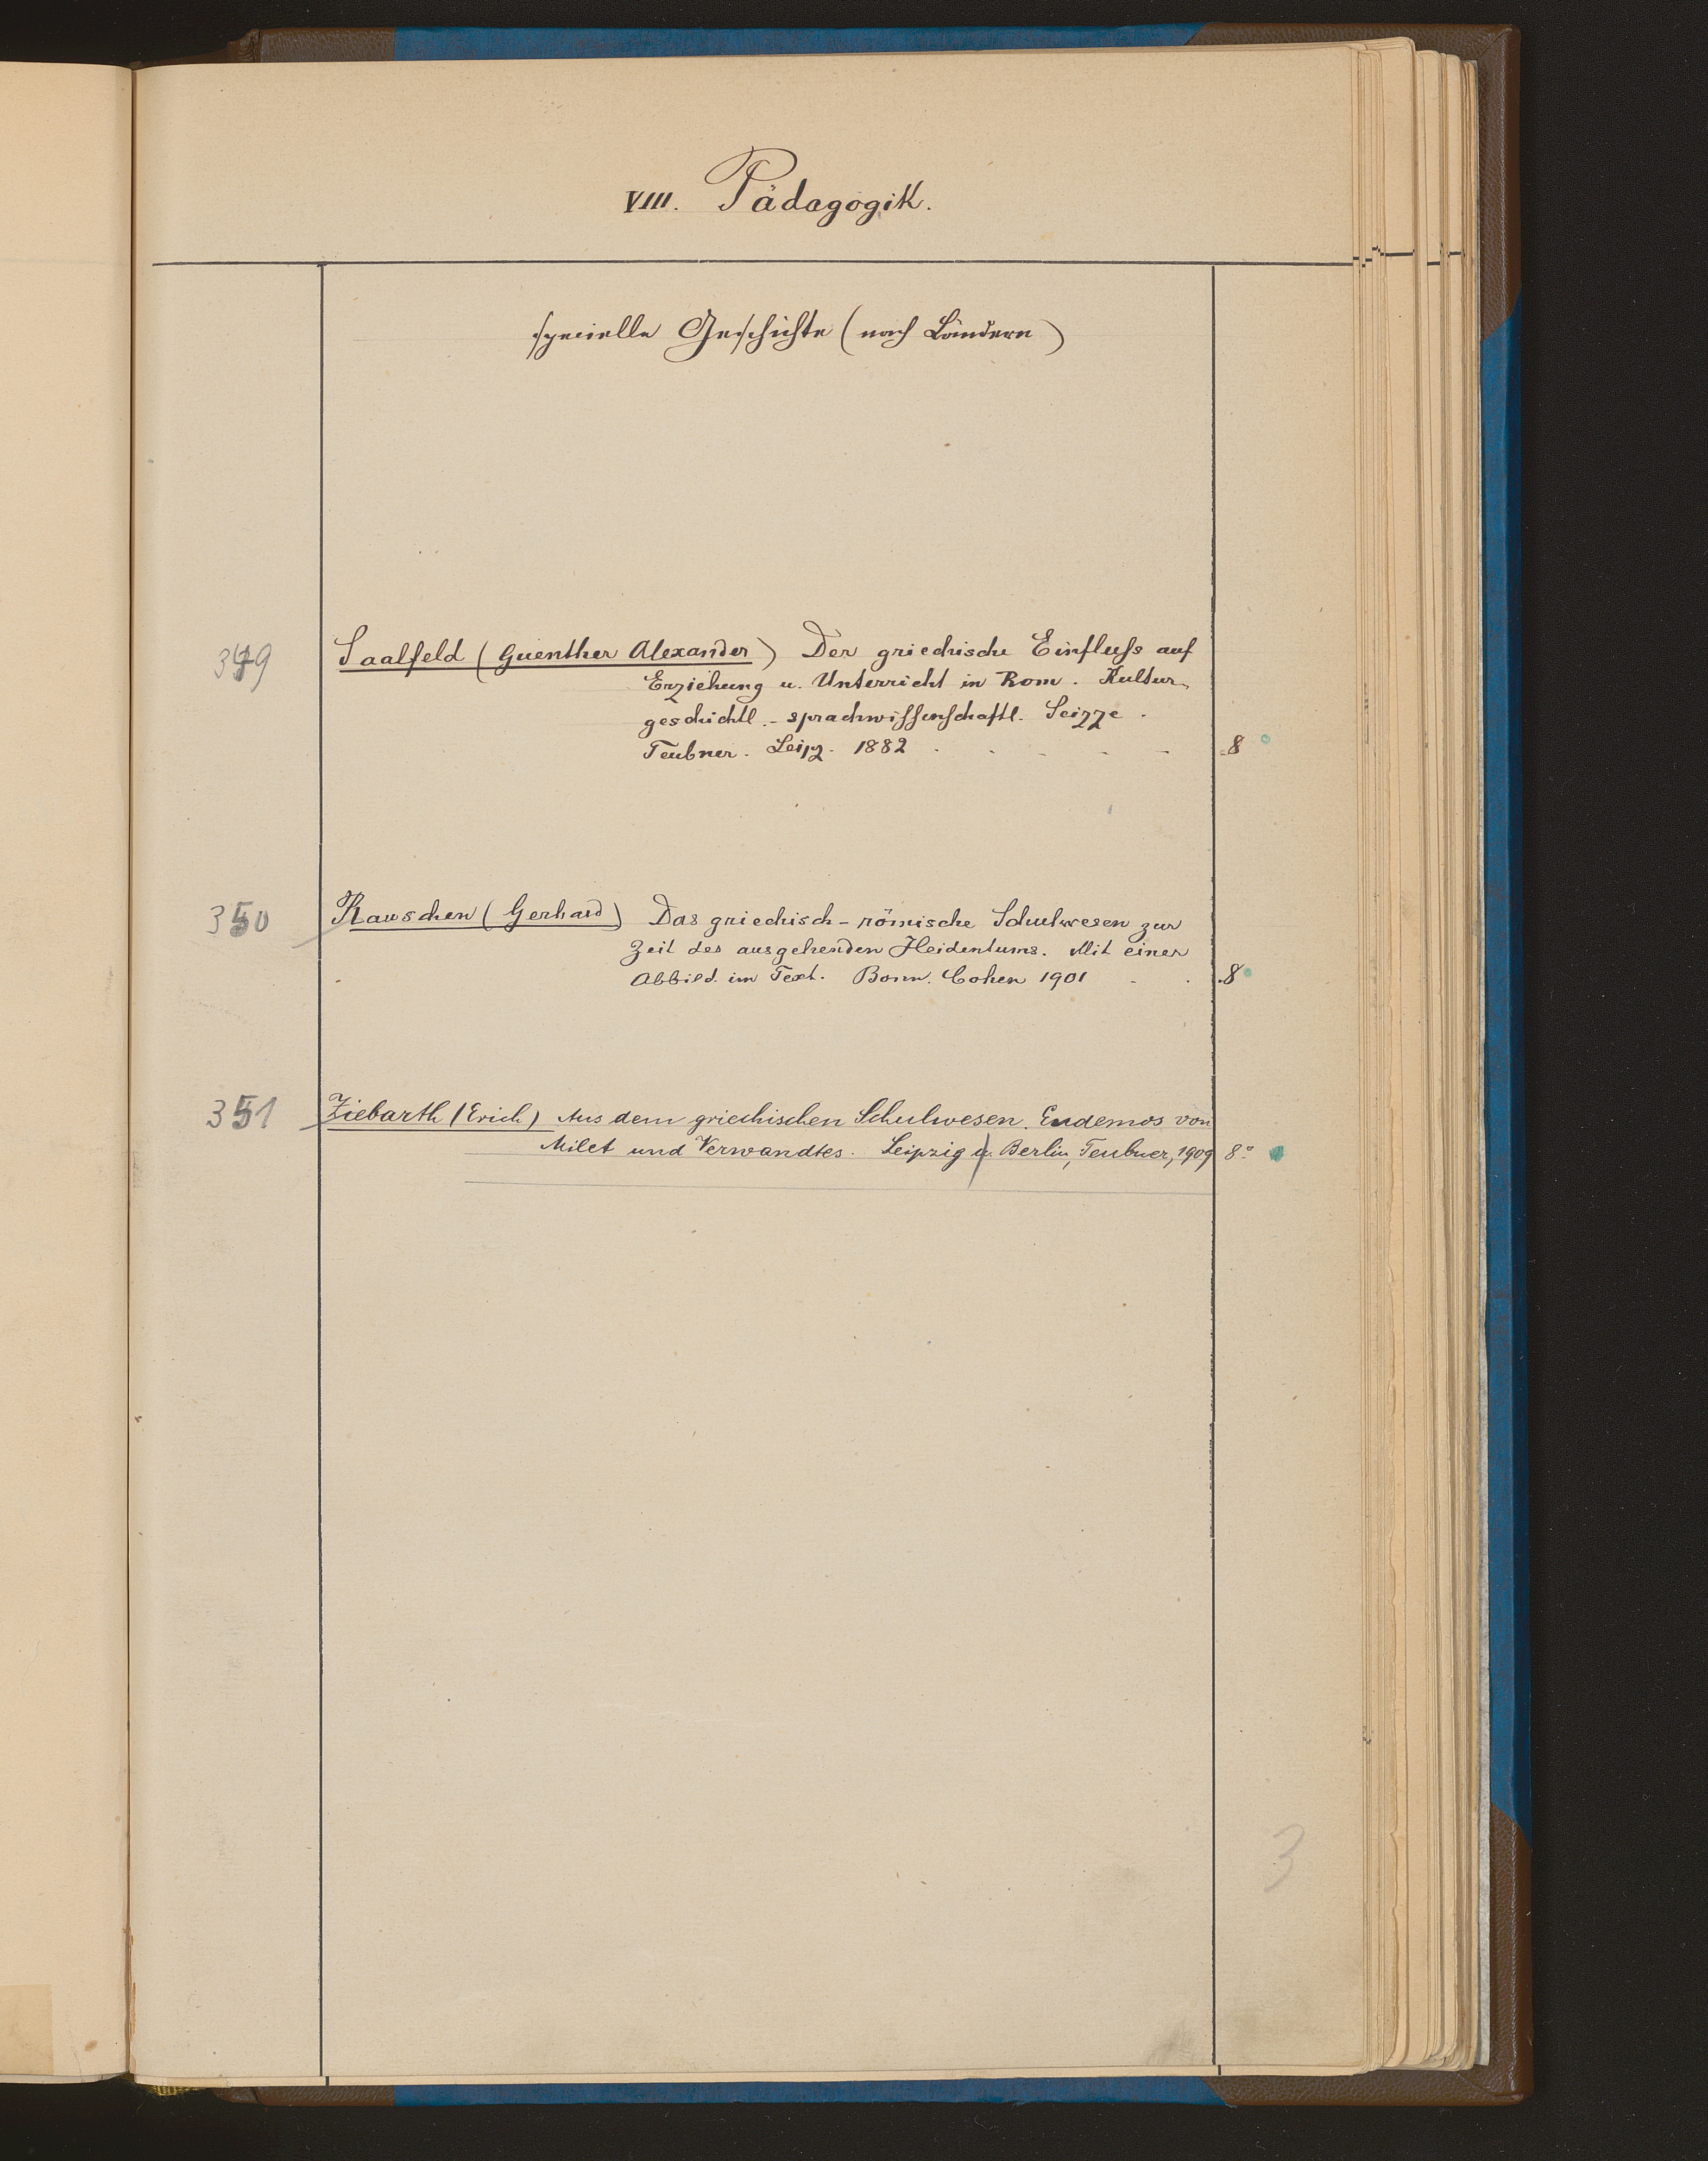 VIII. Pädagogik.
specielle Geschichte (nach Ländern)
349 Saalfeld (Guenther Alexander) Der griechische Einfluſs auf
Erziehung u. Unterricht in Rom. Kultur-
geschichtl.-sprachwiſſenschaftl. Seizze.
Teubner. Leipz. 1882 . . . . . 8
350 Rauschen (Gerhard) Das griechisch-römische Schulwesen zur
Zeit des ausgehenden Heidentums. Mit einer
Abbild. im Text. Bonn. Cohen 1901 . . 8
351 Ziebarth (Erich) Aus dem griechischen Schulwesen. Eudemos von
Milet und Verwandtes. Leipzig u. Berlin, Teubner, 1909 8°
3